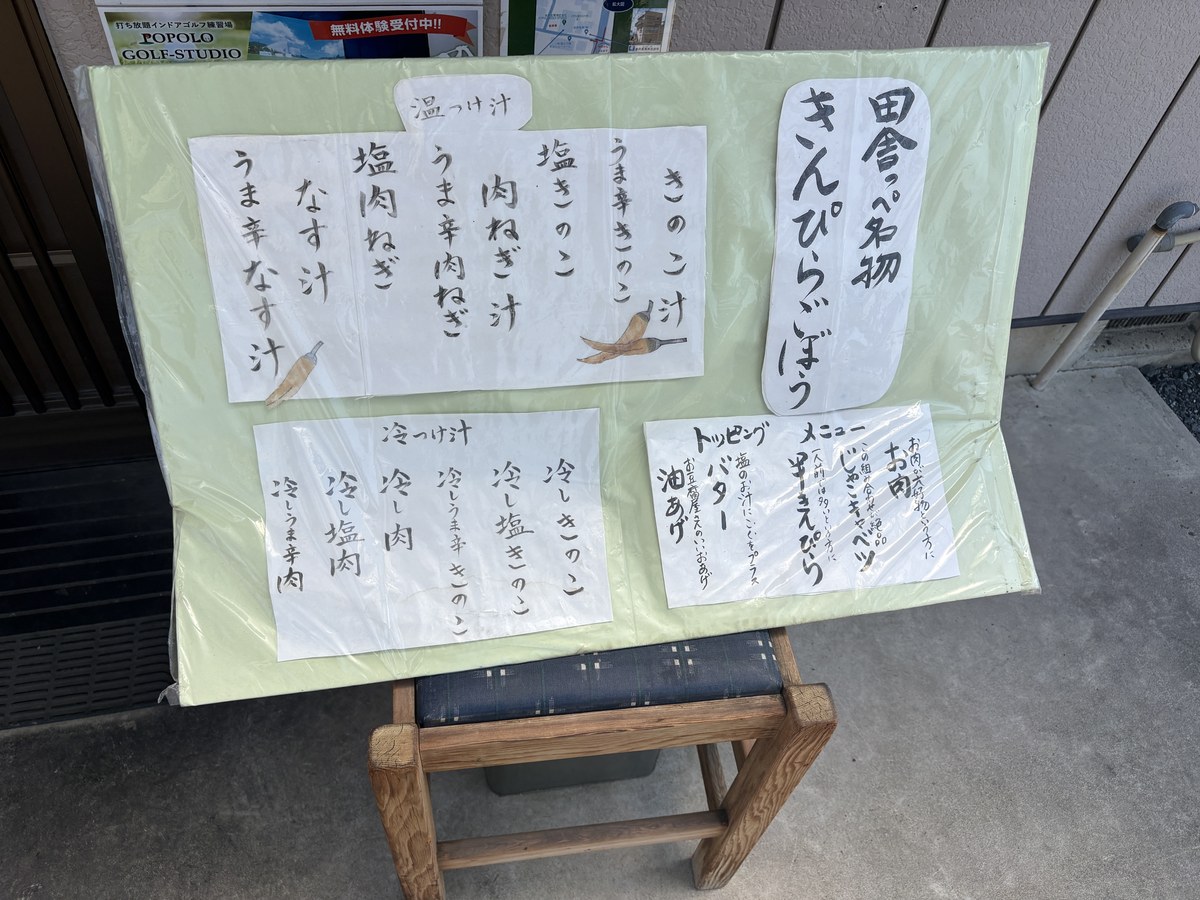 打ち放題インドアゴルフ練習場
POPOLO
GOLF-STUDIO
無料体験受付中!!
田舎っぺ名物
きんぴらごぼう
温つけ汁
きのこ汁
うま辛きのこ
塩きのこ
肉ねぎ汁
うま辛肉ねぎ
塩肉ねぎ
なす汁
うま辛なす汁
冷つけ汁
冷しきのこ
冷し塩きのこ
冷しうま辛きのこ
冷し肉
冷し塩肉
冷しうま辛肉
トッピング メニュー
お肉が大好物という方に
お肉
この組み合わせは絶品
じゃこキャベツ
一人前は多いという方に
半きんぴら
塩のお汁にこくをプラス
バター
お豆腐屋さんのいいおあげ
油あげ